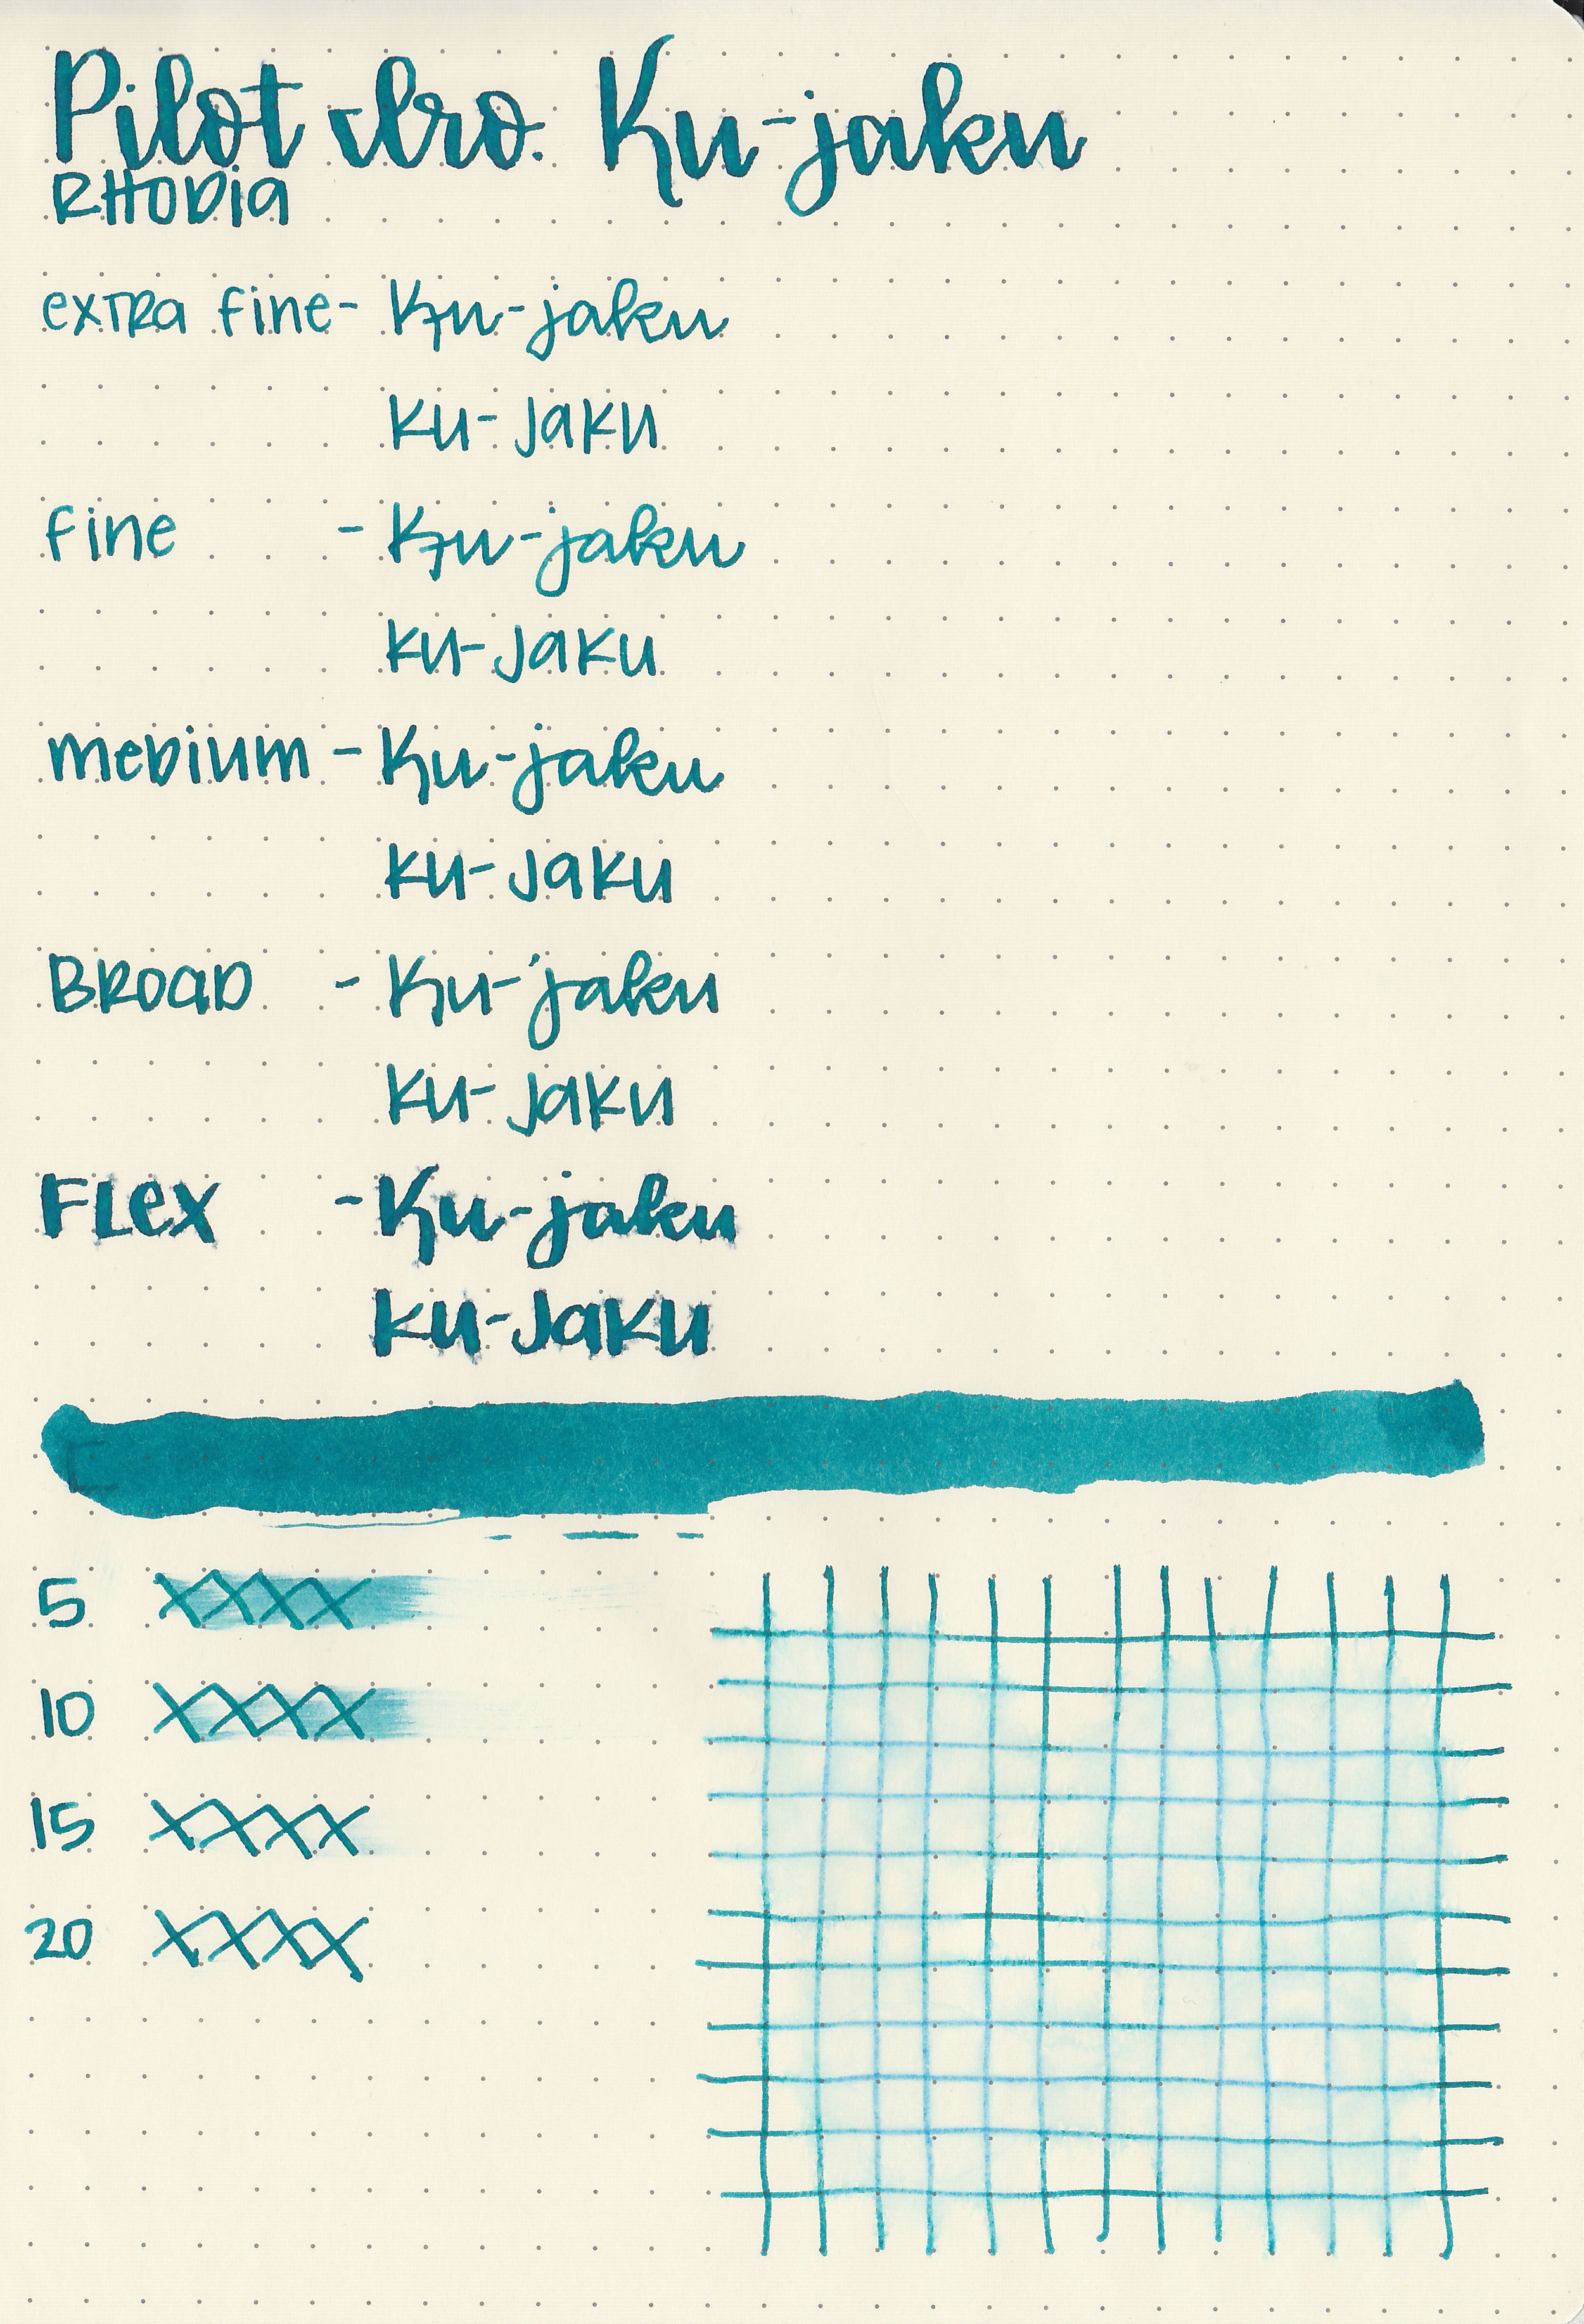 Pilot Iro. Ku-jaku
RHODIA
extra fine - Ku-jaku
Ku-jaku
fine - Ku-jaku
Ku-jaku
medium - Ku-jaku
Ku-jaku
BROAD - Ku-jaku
Ku-jaku
FLex - Ku-jaku
Ku-Jaku
5 XXXX
10 XXXX
15 XXXX
20 XXXX